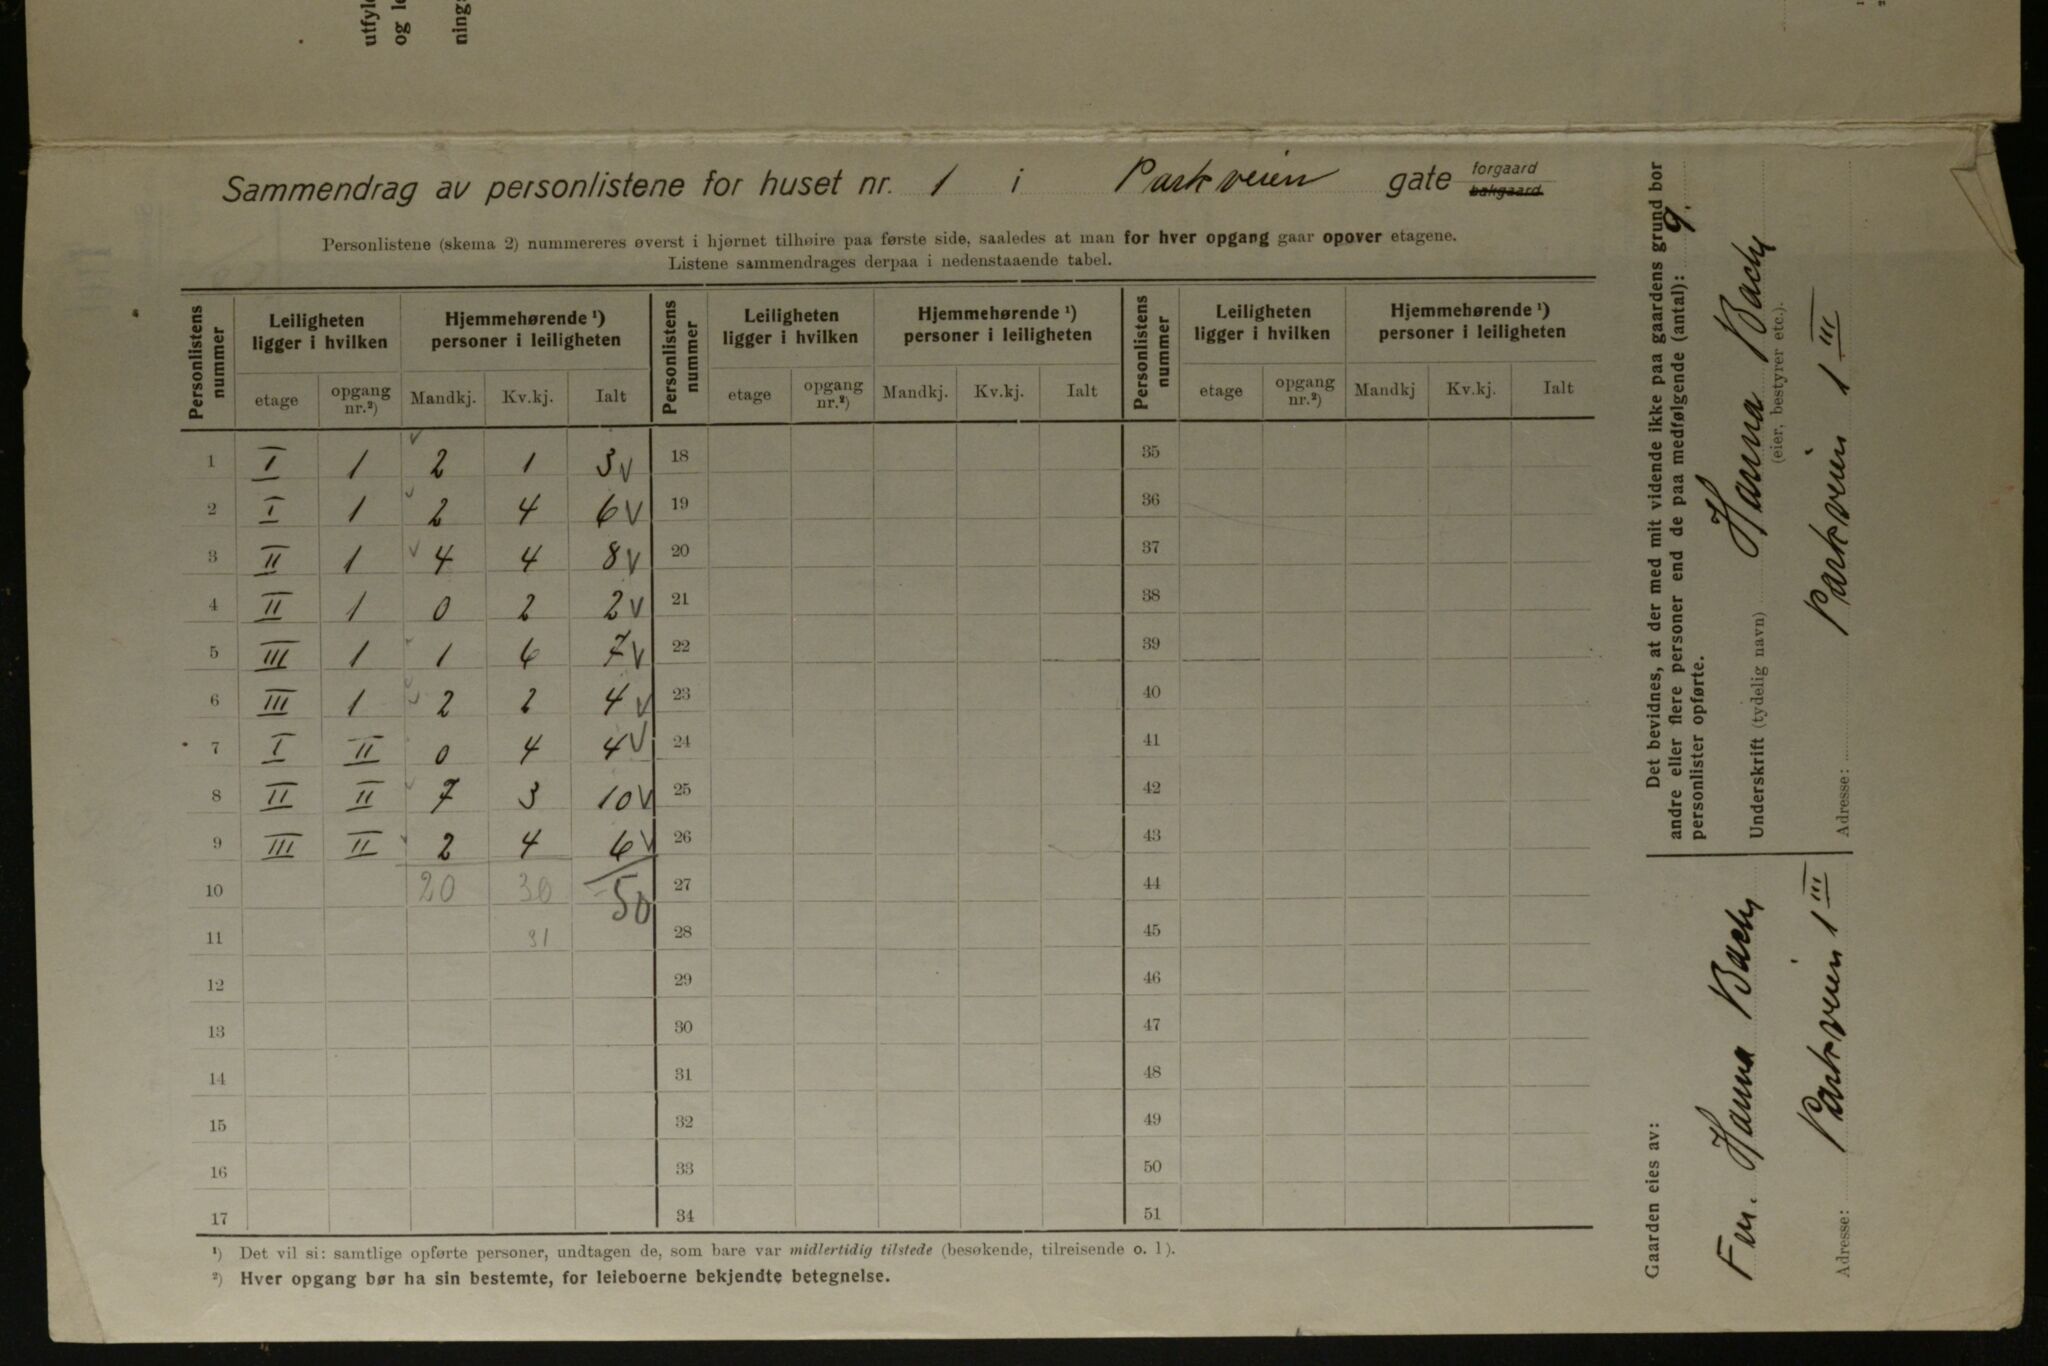 utfyl
og le
ning
Sammendrag av personlistene for huset nr. 1 i Parkveien gate forgaard bakgaard.
Personlistene (skema 2) nummereres øverst i hjørnet tilhøire paa første side, saaledes at man for hver opgang gaar opover etagene.
Listene sammendrages derpaa i nedenstaaende tabel.
Personlistens nummer | Leiligheten ligger i hvilken | Hjemmehørende ¹) personer i leiligheten | Personlistens nummer | Leiligheten ligger i hvilken | Hjemmehørende ¹) personer i leiligheten | Personlistens nummer | Leiligheten ligger i hvilken | Hjemmehørende ¹) personer i leiligheten
etage | opgang nr.²) | Mandkj. | Kv.kj. | Ialt | etage | opgang nr.²) | Mandkj. | Kv.kj. | Ialt | etage | opgang nr.²) | Mandkj | Kv.kj. | Ialt
1 I 1 2 1 3 v 18 35
2 I 1 2 4 6 v 19 36
3 II 1 4 4 8 v 20 37
4 II 1 0 2 2 v 21 38
5 III 1 1 6 7 v 22 39
6 III 1 2 2 4 v 23 40
7 I II 0 4 4 v 24 41
8 II II 7 3 10 v 25 42
9 III II 2 4 6 v 26 43
10 20 30 50 27 44
11 31 28 45
12 29 46
13 30 47
14 31 48
15 32 49
16 33 50
17 34 51
¹) Det vil si: samtlige opførte personer, undtagen de, som bare var midlertidig tilstede (besøkende, tilreisende o. l.).
²) Hver opgang bør ha sin bestemte, for leieboerne bekjendte betegnelse.
Det bevidnes, at der med mit vidende ikke paa gaardens grund bor
andre eller flere personer end de paa medfølgende (antal): 9.
personlister opførte.
Underskrift (tydelig navn) Hanna Bach
(eier, bestyrer etc.).
Adresse: Parkveien 1 III
Gaarden eies av:
Hanna Bach
Adresse: Parkveien 1 III